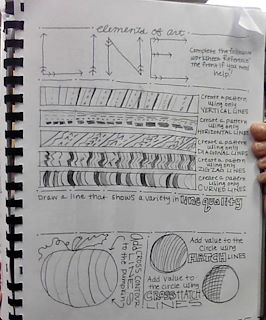 elements of art
LINE
Complete the following
worksheet. Reference
the Prezi if you need
help!
Create a pattern
using only
VERTICAL LINES
Create a pattern
using only
HORIZONTAL LINES
Create a pattern
using only
DIAGONAL LINES
Create a pattern
using only
ZIGZAG LINES
Create a pattern
using only
CURVED LINES
Draw a line that shows a variety in line quality
Add CROSS CONTOUR
LINES
to the pumpkin
Add value to the
Circle using
HATCH LINES
Add value to
the circle using
CROSSHATCH
LINES